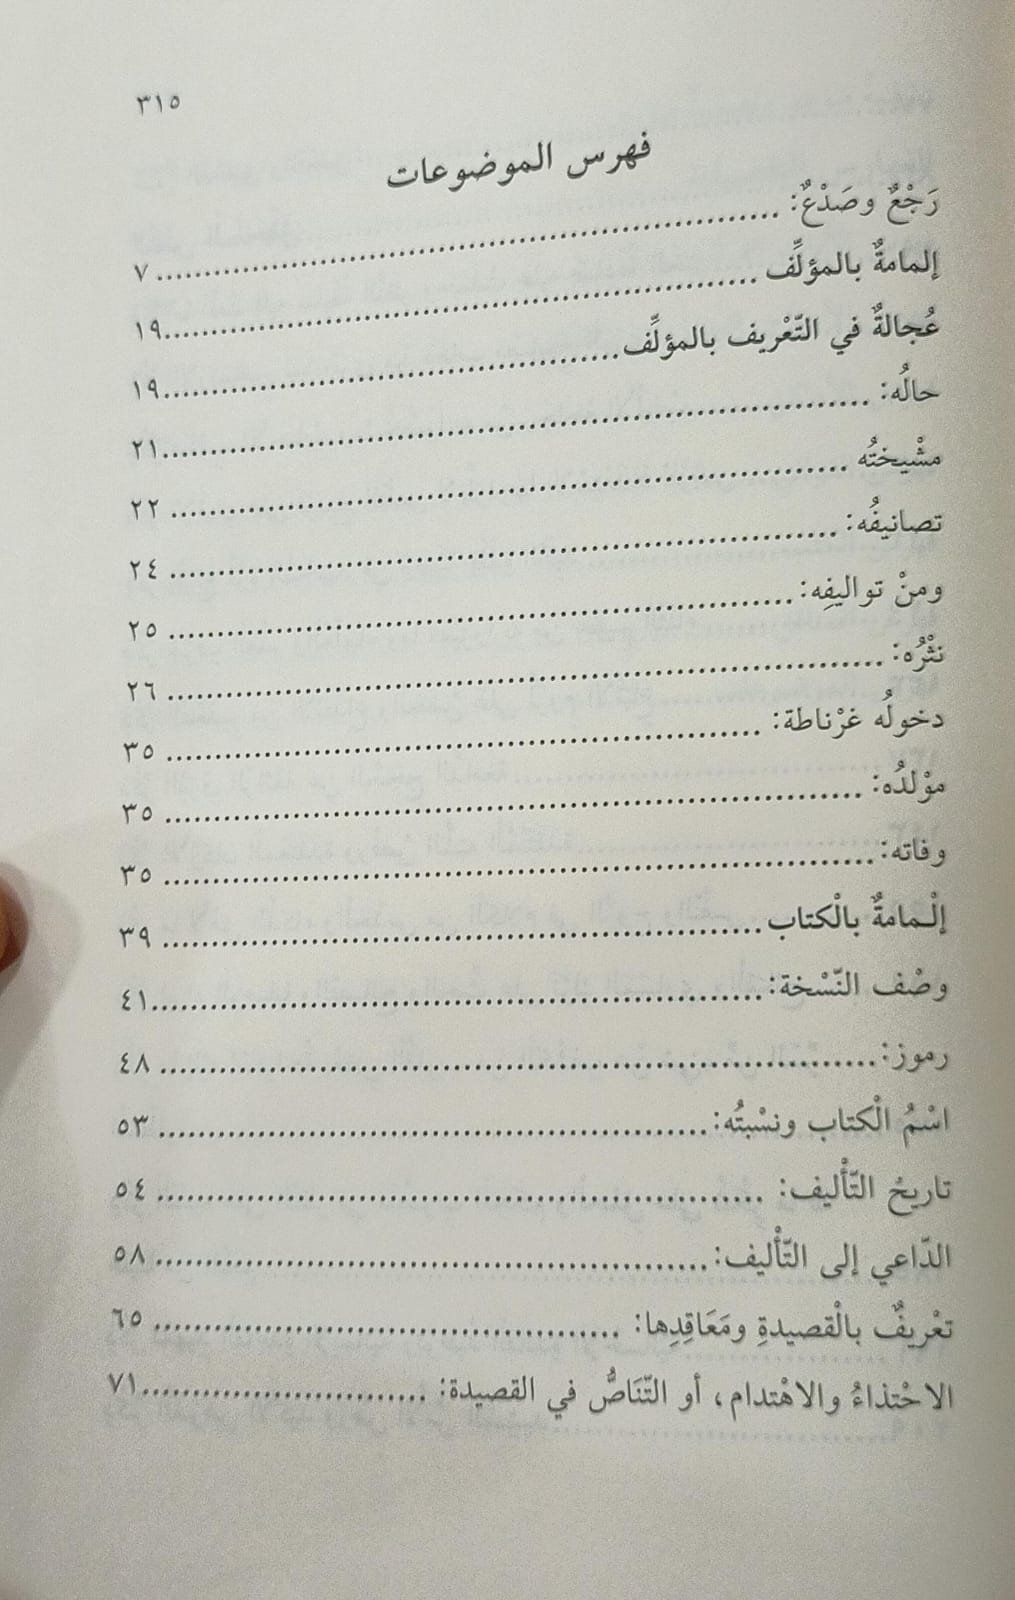 ٣١٥
فهرس الموضوعات
رَجْعٌ وصَدْعٌ: ........ ٧
إلمامةٌ بالمؤلِّف ........ ١٩
عُجالةٌ في التّعْريف بالمؤلِّف ........ ١٩
حالُه: ........ ٢١
مشْيختُه ........ ٢٢
تصانيفُه: ........ ٢٤
ومنْ تواليفِه: ........ ٢٥
نثْرُه: ........ ٢٦
دخولُه غرْناطة: ........ ٣٥
موْلدُه: ........ ٣٥
وفاته: ........ ٣٥
إلْـمامةٌ بالْكتاب ........ ٣٩
وصْف النّسْخة: ........ ٤١
رموز: ........ ٤٨
اسْمُ الْكتاب ونسْبتُه: ........ ٥٣
تاريخُ التّأْليف: ........ ٥٤
الدّاعي إلى التّأْليف: ........ ٥٨
تعْريفٌ بالْقصيدةِ ومَعَاقِدِها: ........ ٦٥
الاحْتذاءُ والاهْتدام، أو التّنَاصُّ في القصيدة: ........ ٧١